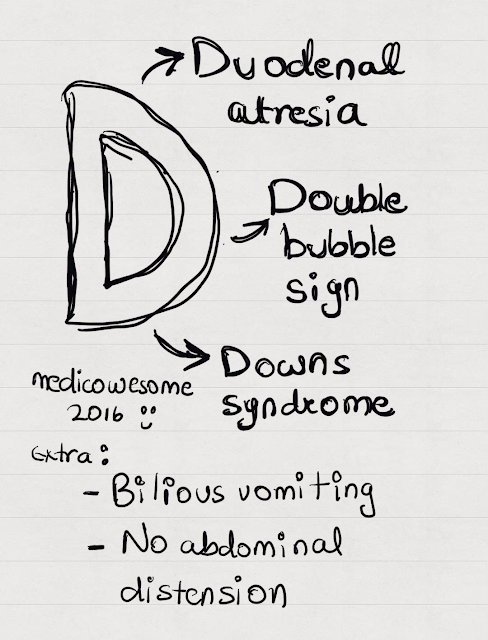 D
Duodenal
atresia
Double
bubble
sign
Downs
syndrome
medicowesome
2016 :)
Extra:
- Bilious vomiting
- No abdominal
distension